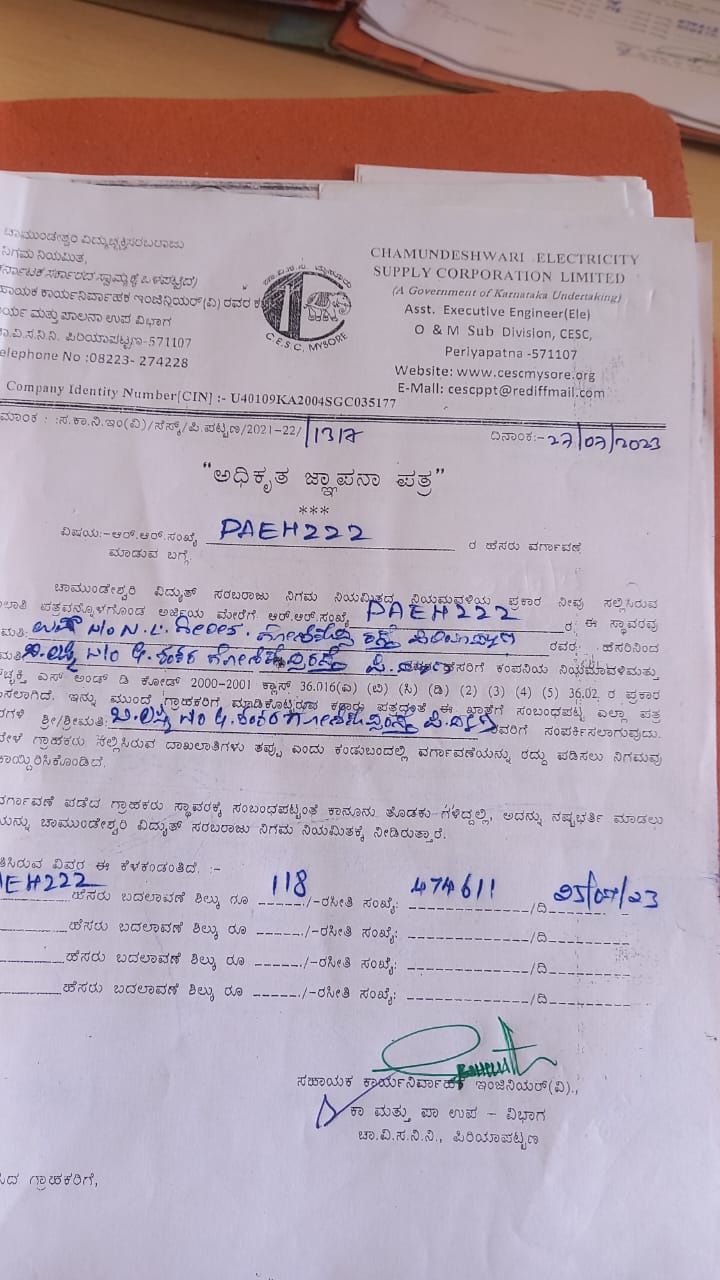 ಚಾಮುಂಡೇಶ್ವರಿ ವಿದ್ಯುಚ್ಛಕ್ತಿ ಸರಬರಾಜು
ನಿಗಮ ನಿಯಮಿತ,
ರ್ನಾಟಕ ಸರ್ಕಾರದ ಸ್ವಾಮ್ಯಕ್ಕೆ ಒಳಪಟ್ಟಿದೆ)
ಹಾಯಕ ಕಾರ್ಯನಿರ್ವಾಹಕ ಇಂಜಿನಿಯರ್(ವಿ) ರವರ
ರ್ಯ ಮತ್ತು ಪಾಲನಾ ಉಪ ವಿಭಾಗ
ಚಾ.ವಿ.ಸ.ನಿ.ನಿ. ಪಿರಿಯಾಪಟ್ಟಣ-571107
elephone No :08223- 274228
C.E.S.C, MYSORE
CHAMUNDESHWARI ELECTRICITY
SUPPLY CORPORATION LIMITED
(A Government of Karnataka Undertaking)
Asst. Executive Engineer(Ele)
O & M Sub Division, CESC,
Periyapatna -571107
Website: www.cescmysore.org
E-Mall: cescppt@rediffmail.com
Company Identity Number[CIN] :- U40109KA2004SGC035177
ಮಾಂಕ : :ಸ.ಕಾ.ನಿ.ಇಂ(ವಿ)/ಸೆಸ್ಕ್/ಪಿ.ಪಟ್ಟಣ/2021-22/1317 ದಿನಾಂಕ:-27/07/2023
"ಅಧಿಕೃತ ಜ್ಞಾಪನಾ ಪತ್ರ"
***
ವಿಷಯ:-ಆರ್.ಆರ್.ಸಂಖ್ಯೆ PAEH222 ರ ಹೆಸರು ವರ್ಗಾವಣೆ
ಮಾಡುವ ಬಗ್ಗೆ.
ಚಾಮುಂಡೇಶ್ವರಿ ವಿದ್ಯುತ್ ಸರಬರಾಜು ನಿಗಮ ನಿಯಮಿತದ ನಿಯಮಾವಳಿಯ ಪ್ರಕಾರ ನೀವು ಸಲ್ಲಿಸಿರುವ
ಲಾತಿ ಪತ್ರವನ್ನೊಳಗೊಂಡ ಅರ್ಜಿಯ ಮೇರೆಗೆ ಆರ್.ಆರ್.ಸಂಖ್ಯೆ PAEH222 ರ ಈ ಸ್ಥಾವರವು
ಮತಿ: W/O N.L. ರವರ ಹೆಸರಿನಿಂದ
ಮತಿ W/O G. ಶಂಕರ ಹೆಸರಿಗೆ ಕಂಪನಿಯ ನಿಯಮಾವಳಿಮತ್ತು
ಚ್ಛಕ್ತಿ ಎಸ್ ಅಂಡ್ ಡಿ ಕೋಡ್ 2000-2001 ಕ್ಲಾಸ್ 36.016(ಎ) (ಬಿ) (ಸಿ) (ಡಿ) (2) (3) (4) (5) 36.02 ರ ಪ್ರಕಾರ
ಸಲಾಗಿದೆ. ಇನ್ನು ಮುಂದೆ ಗ್ರಾಹಕರಿಗೆ ಮಾಡಿಕೊಟ್ಟಿರುವ ಕರಾರು ಪತ್ರದಂತೆ ಈ ಖಾತೆಗೆ ಸಂಬಂಧಪಟ್ಟ ಎಲ್ಲಾ ಪತ್ರ
ರಗಳಿ ಶ್ರೀ/ಶ್ರೀಮತಿ: W/O G. ಶಂಕರ ರವರಿಗೆ ಸಂಪರ್ಕಿಸಲಾಗುವುದು.
ವೇಳೆ ಗ್ರಾಹಕರು ಸಲ್ಲಿಸಿರುವ ದಾಖಲಾತಿಗಳು ತಪ್ಪು ಎಂದು ಕಂಡುಬಂದಲ್ಲಿ ವರ್ಗಾವಣೆಯನ್ನು ರದ್ದು ಪಡಿಸಲು ನಿಗಮವು
ಕಾಯ್ದಿರಿಸಿಕೊಂಡಿದೆ.
ವರ್ಗಾವಣೆ ಪಡೆದ ಗ್ರಾಹಕರು ಸ್ಥಾವರಕ್ಕೆ ಸಂಬಂಧಪಟ್ಟಂತೆ ಕಾನೂನು ತೊಡಕು ಗಳಿದ್ದಲ್ಲಿ, ಅದನ್ನು ನಷ್ಟಭರ್ತಿ ಮಾಡಲು
ಯನ್ನು ಚಾಮುಂಡೇಶ್ವರಿ ವಿದ್ಯುತ್ ಸರಬರಾಜು ನಿಗಮ ನಿಯಮಿತಕ್ಕೆ ನೀಡಿರುತ್ತಾರೆ.
ತಿಸಿರುವ ವಿವರ ಈ ಕೆಳಕಂಡಂತಿದೆ. :-
AEH222 ಹೆಸರು ಬದಲಾವಣೆ ಶುಲ್ಕು ರೂ 118 /-ರಸೀತಿ ಸಂಖ್ಯೆ: 474611 /ದಿ 25/07/23
ಹೆಸರು ಬದಲಾವಣೆ ಶಿಲ್ಕು ರೂ ------/-ರಸೀತಿ ಸಂಖ್ಯೆ: /ದಿ
ಹೆಸರು ಬದಲಾವಣೆ ಶಿಲ್ಕು ರೂ ------/-ರಸೀತಿ ಸಂಖ್ಯೆ: /ದಿ
ಹೆಸರು ಬದಲಾವಣೆ ಶಿಲ್ಕು ರೂ ------/-ರಸೀತಿ ಸಂಖ್ಯೆ: /ದಿ
ಸಹಾಯಕ ಕಾರ್ಯನಿರ್ವಾಹಕ ಇಂಜಿನಿಯರ್(ವಿ).,
ಕಾ ಮತ್ತು ಪಾ ಉಪ – ವಿಭಾಗ
ಚಾ.ವಿ.ಸ.ನಿ.ನಿ., ಪಿರಿಯಾಪಟ್ಟಣ
ಸಿದ ಗ್ರಾಹಕರಿಗೆ,